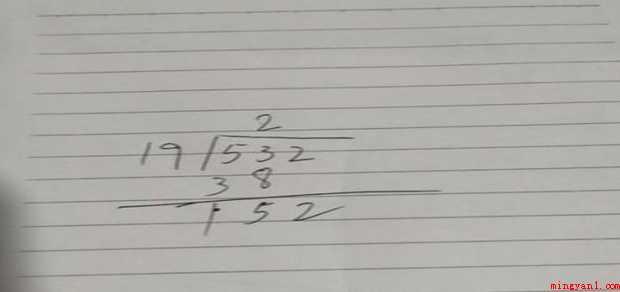 2
19 532
38
152
mingyan1.com